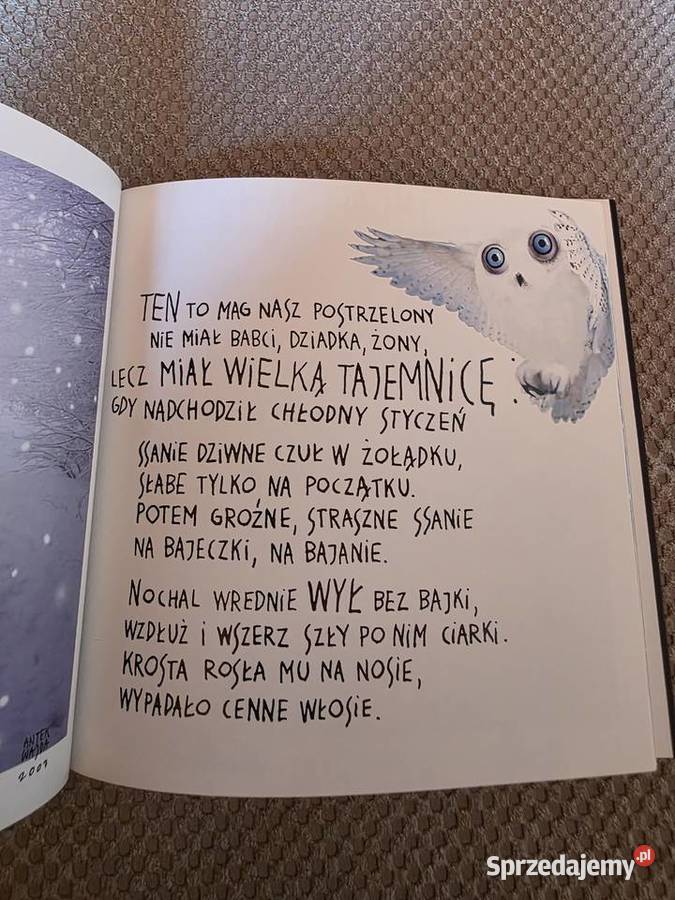 TEN TO MAG NASZ POSTRZELONY
NIE MIAŁ BABCI, DZIADKA, ŻONY,
LECZ MIAŁ WIELKĄ TAJEMNICĘ :
GDY NADCHODZIŁ CHŁODNY STYCZEŃ
SSANIE DZIWNE CZUŁ W ŻOŁĄDKU,
SŁABE TYLKO NA POCZĄTKU.
POTEM GROŹNE, STRASZNE SSANIE
NA BAJECZKI, NA BAJANIE.
NOCHAL WREDNIE WYŁ BEZ BAJKI,
WZDŁUŻ I WSZERZ SZŁY PO NIM CIARKI.
KROSTA ROSŁA MU NA NOSIE,
WYPADAŁO CENNE WŁOSIE.
ANTEK
WAJDA
2007
Sprzedajemy.pl